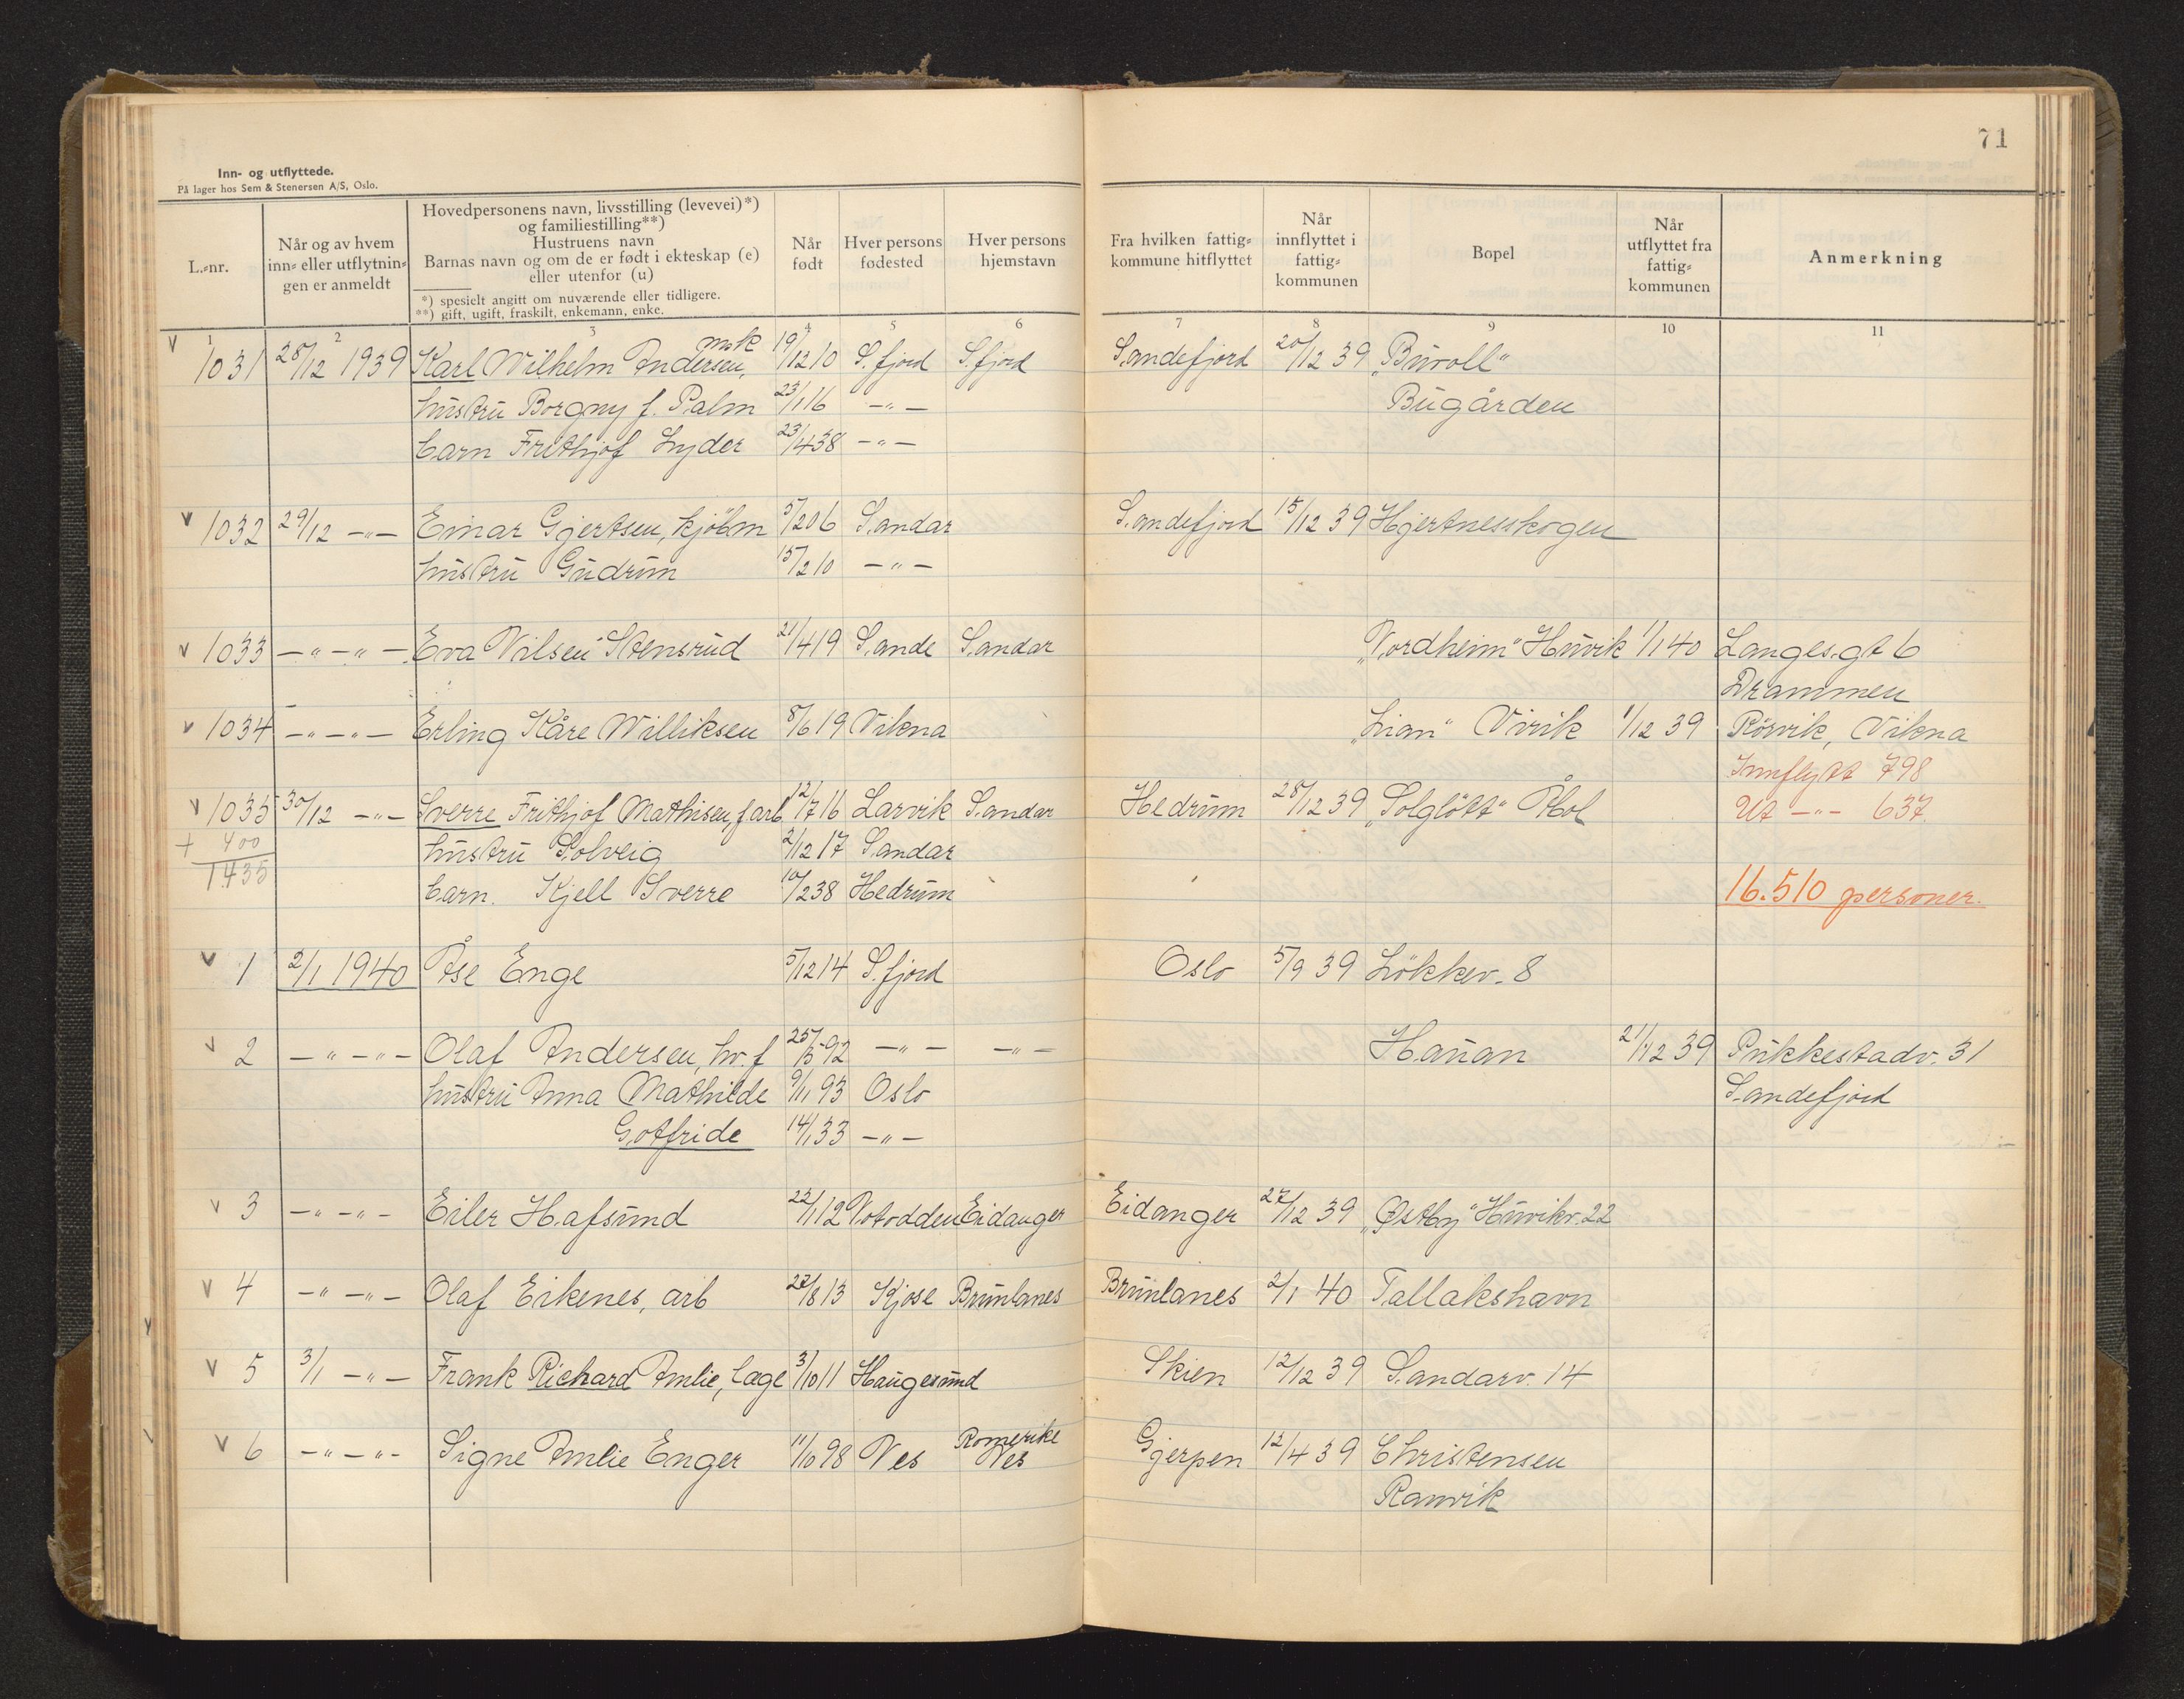 71
Inn- og utflyttede.
På lager hos Sem & Stenersen A/S, Oslo.
L.-nr.
Når og av hvem
inn- eller utflytnin-
gen er anmeldt
Hovedpersonens navn, livsstilling (levevei)*)
og familiestilling**)
Hustruens navn
Barnas navn og om de er født i ekteskap (e)
eller utenfor (u)
*) spesielt angitt om nuværende eller tidligere.
**) gift, ugift, fraskilt, enkemann, enke.
Når
født
Hver persons
fødested
Hver persons
hjemstavn
Fra hvilken fattig-
kommune hitflyttet
Når
innflyttet i
fattig-
kommunen
Bopel
Når
utflyttet fra
fattig-
kommunen
Anmerkning
1 2 3 4 5 6 7 8 9 10 11
v 1031 28/12 1939 Karl Wilhelm Andersen, mask 19/12 10 S.fjord S.fjord Sandefjord 20/12 39 "Buvoll"
hustru Borgny f. Palm 23/1 16 -"- Bugården
barn Frithjof Lyder 23/4 38 -"-
v 1032 29/12 -"- Einar Gjertsen, kjøbm 5/2 06 Sandar Sandefjord 15/12 39 Hjertnesskogen
hustru Gudrun 15/2 10 -"-
v 1033 -"-"- Eva Nilsen Stensrud 21/4 19 Sande Sandar "Nordheim" Huvik 1/1 40 Langes.gt 6
Drammen
v 1034 -"-"- Erling Kåre Williksen 8/6 19 Vikna "Lian" Virik 1/12 39 Rörvik, Vikna
Innflytt 798
v 1035 30/12 -"- Sverre Frithjof Mathisen, f.arb 12/7 16 Larvik Sandar Hedrum 28/12 39 "Solglött" Hol Ut -"- 637.
+ 400 hustru Solveig 2/12 17 Sandar
1435 barn. Kjell Sverre 10/2 38 Hedrum 16.510 personer.
v 1 2/1 1940 Åse Enge 5/12 14 S.fjord Oslo 5/9 39 Lökkev. 8
v 2 -"-"- Olaf Andersen, hv.f 25/5 92 -"- -"- Hauan 21/12 39 Pukkestadv. 31
hustru Anna Mathilde 9/11 93 Oslo Sandefjord
Gotfride 14/1 33 -"-
v 3 -"-"- Eiler Hafsund 22/1 12 Notodden Eidanger Eidanger 27/12 39 "Østby" Huvikv. 22
v 4 -"-"- Olaf Eikenes, arb 27/8 13 Kjose Brunlanes Brunlanes 2/1 40 Tallakshavn
v 5 3/1 -"- Frank Richard Amlie, lage 3/10 11 Haugesund Skien 12/12 39 Sandarv. 14
v 6 -"-"- Signe Amlie Enger 11/10 98 Nes Romerike Nes Gjerpen 12/4 39 Christensen
Ranvik